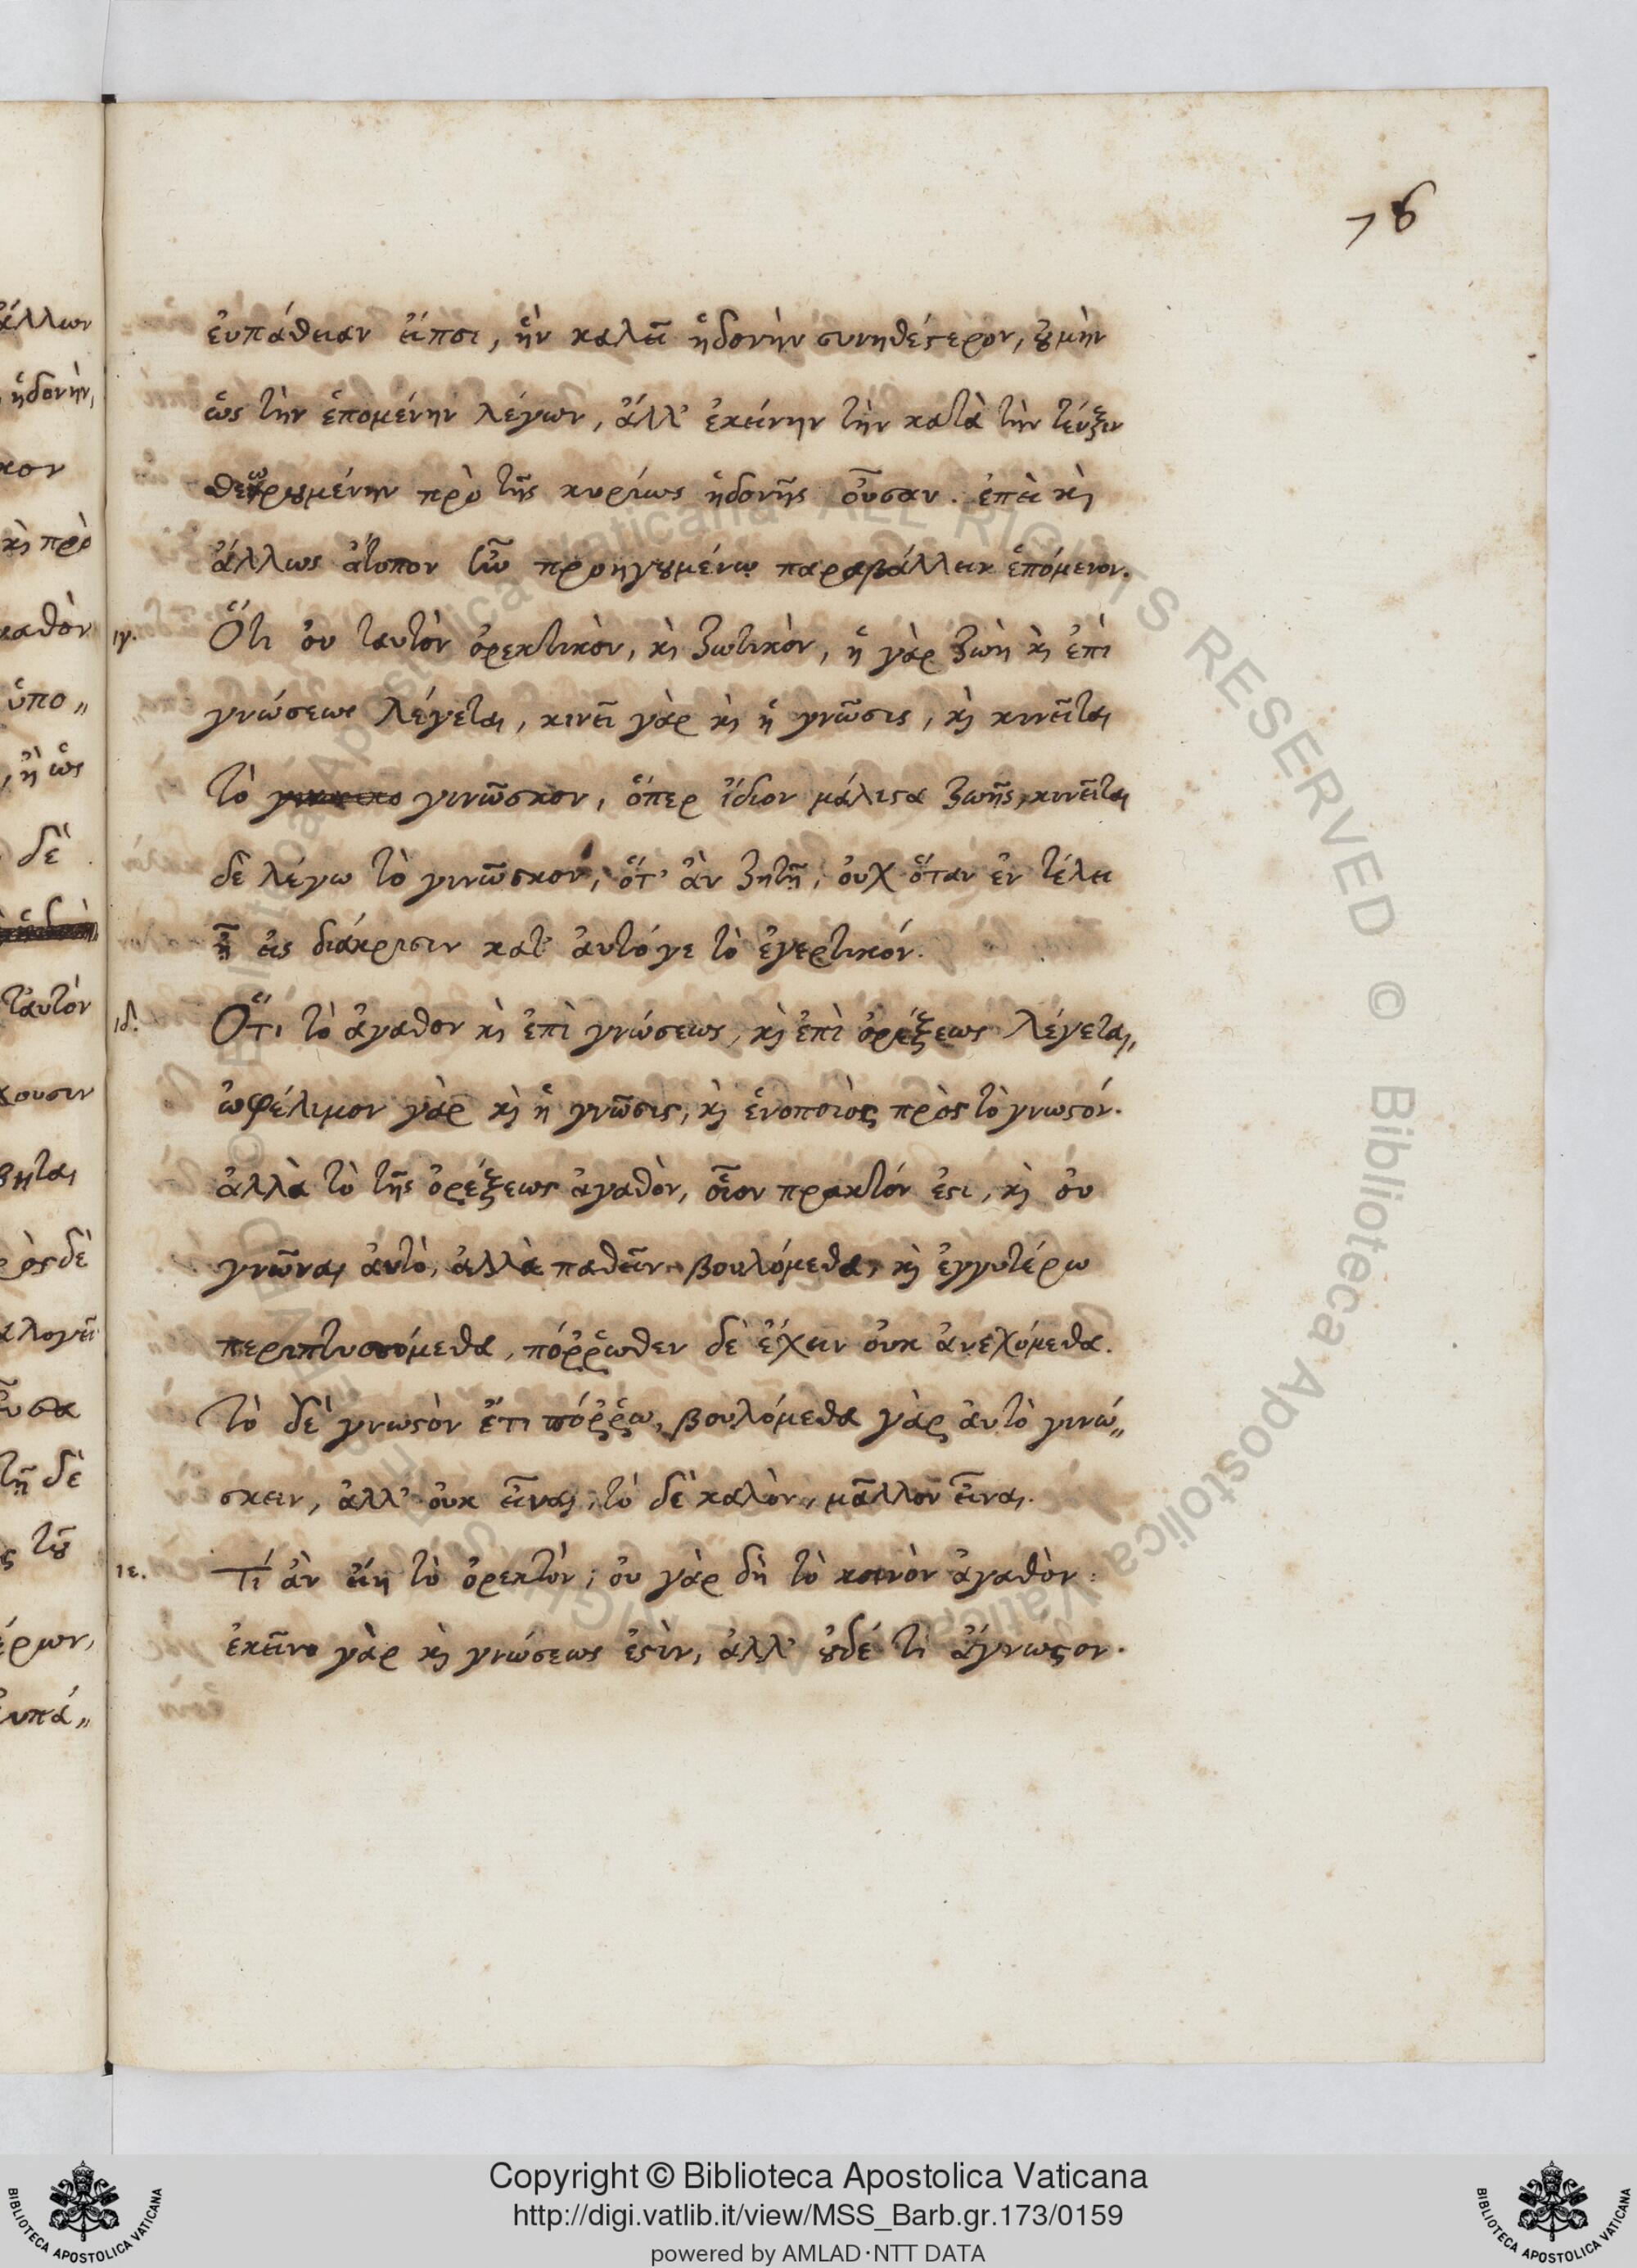 78
εὐπάθειαν εἴποι, ἣν καλεῖ ἡδονὴν συνηθέστερον, οὐ μὴν
ὡς τὴν ἑπομένην λέγων, ἀλλ' ἐκείνην τὴν κατὰ τὴν τεῦξιν
θεωρουμένην πρὸ τῆς κυρίως ἡδονῆς οὖσαν. ἐπεὶ καὶ
ἄλλως ἄτοπον τῷ προηγουμένῳ παραβάλλειν ἑπόμενον.
ιγ. Ὅτι οὐ ταυτὸν ὀρεκτικὸν, καὶ ζωτικὸν, ἡ γὰρ ζωὴ καὶ ἐπὶ
γνώσεως λέγεται, κινεῖ γὰρ καὶ ἡ γνῶσις, καὶ κινεῖται
τὸ γινῶσκον, ὅπερ ἴδιον μάλιστα ζωῆς, κινεῖται
δὲ λέγω τὸ γινῶσκον, ὅτ' ἂν ζητῇ, οὐχ ὅταν ἐν τέλει
ᾖ εἰς διάκρισιν κατ' αὐτόγε τὸ ἐγερτικόν.
ιδ. Ὅτι τὸ ἀγαθον καὶ ἐπὶ γνώσεως, καὶ ἐπὶ ὀρέξεως λέγεται,
ὠφέλιμον γὰρ καὶ ἡ γνῶσις, καὶ ἑνοποιὸς πρὸς τὸ γνωστόν.
ἀλλὰ τὸ τῆς ὀρέξεως ἀγαθὸν, οἷον πρακτόν ἐστι, καὶ οὐ
γνῶναι αὐτὸ, ἀλλὰ παθεῖν βουλόμεθα, καὶ ἐγγυτέρω
περιπτυσσόμεθα, πόῤῥωθεν δὲ ἔχειν οὐκ ἀνεχόμεθα.
τὸ δὲ γνωστὸν ἔτι πόῤῥω, βουλόμεθα γὰρ αὐτὸ γινώ„
σκειν, ἀλλ' οὐκ εἶναι, τὸ δὲ καλὸν, μᾶλλον εἶναι.
ιε. Τί ἂν εἴη τὸ ὀρεκτὸν; οὐ γὰρ δὴ τὸ κοινὸν ἀγαθὸν:
ἐκεῖνο γὰρ καὶ γνώσεως ἐστὶν, ἀλλ' οὐδέ τι ἄγνωστον.
Copyright © Biblioteca Apostolica Vaticana
http://digi.vatlib.it/view/MSS_Barb.gr.173/0159
powered by AMLAD·NTT DATA